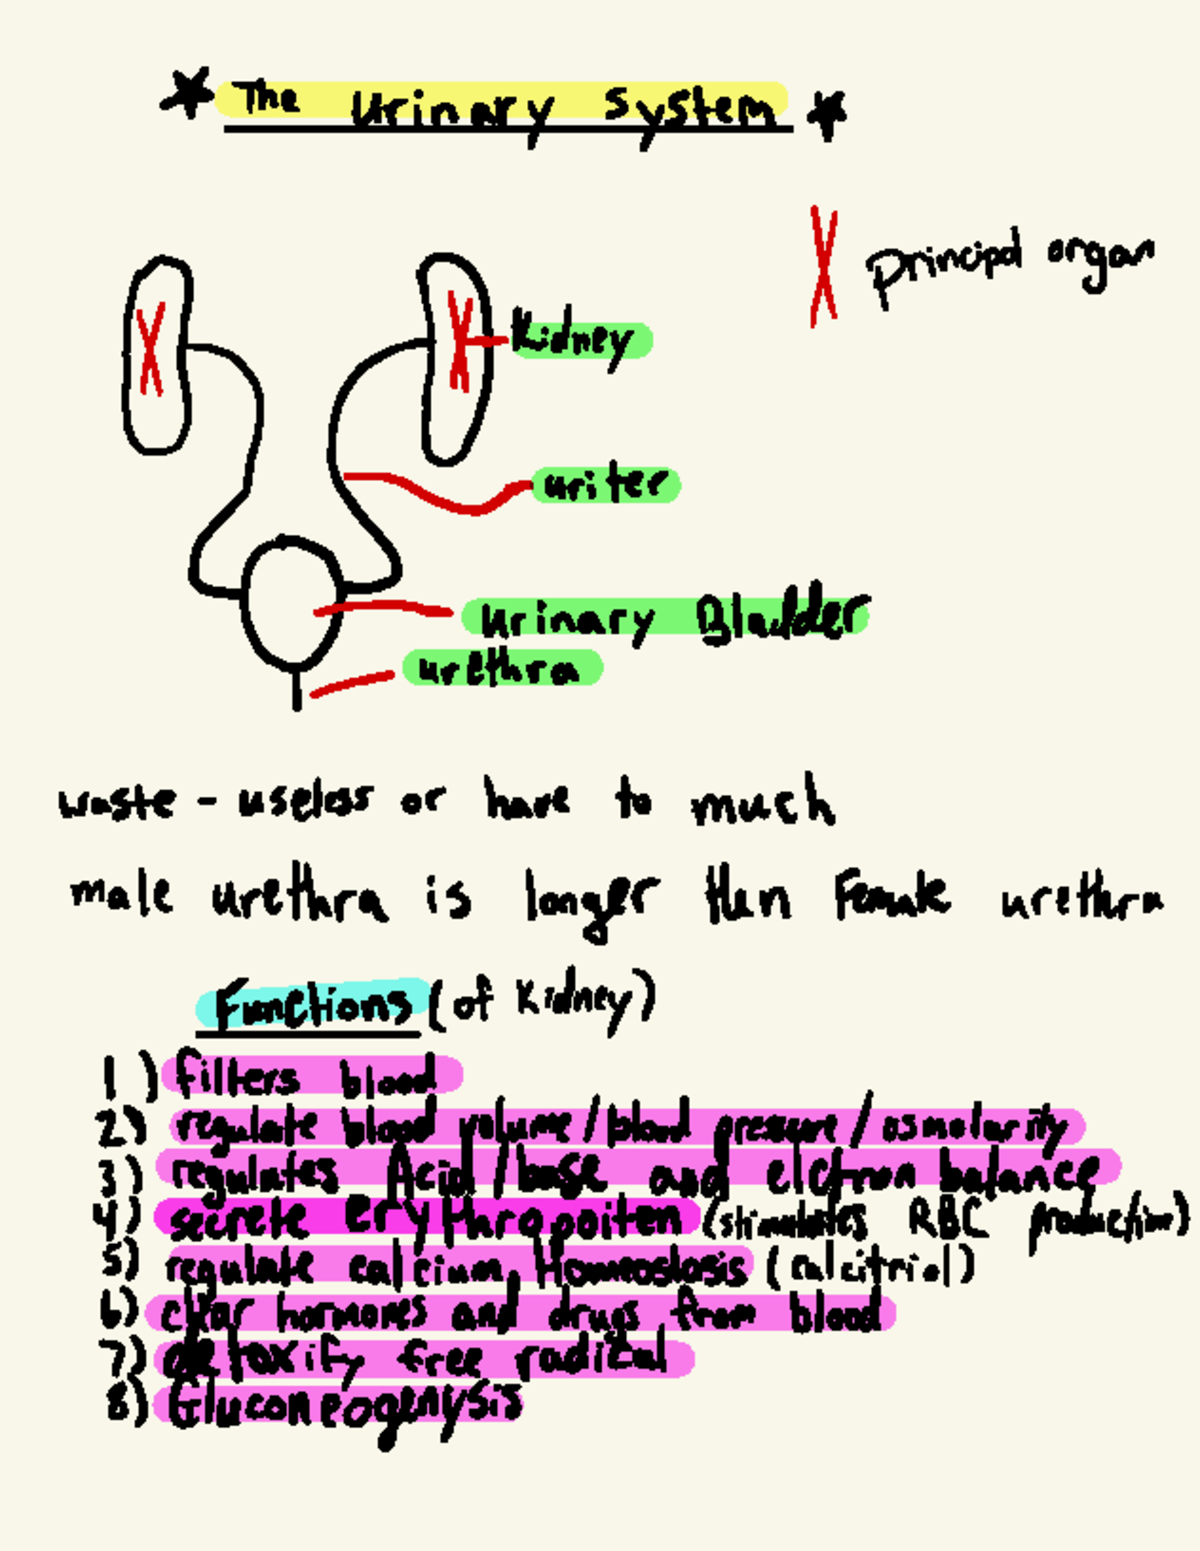 The Urinary System
principal organ
Kidney
uriter
urinary Bladder
urethra
waste - useless or have to much
male urethra is longer then Female urethra
Functions (of Kidney)
1) filters blood
2) regulate blood volume/blood pressure/osmolarity
3) regulates Acid/base and elctron balance
4) secrete erythropoiten (stimulates RBC production)
5) regulate calcium Homeostasis (calcitriol)
6) clear hormones and drugs from blood
7) detoxify free radical
8) Gluconeogenysis